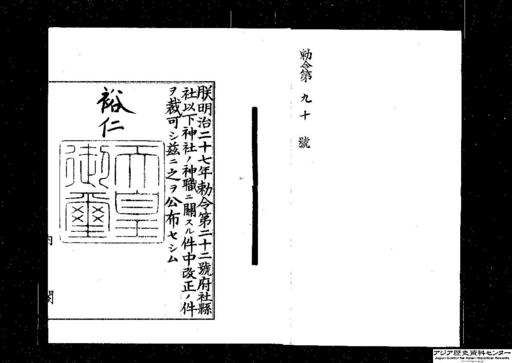 勅令第九十號
朕明治二十七年勅令第二十二號府社縣
社以下神社ノ神職ニ關スル件中改正ノ件
ヲ裁可シ茲ニ之ヲ公布セシム
裕仁
天皇
御璽
内閣
アジア歴史資料センター
Japan Center for Asian Historical Records